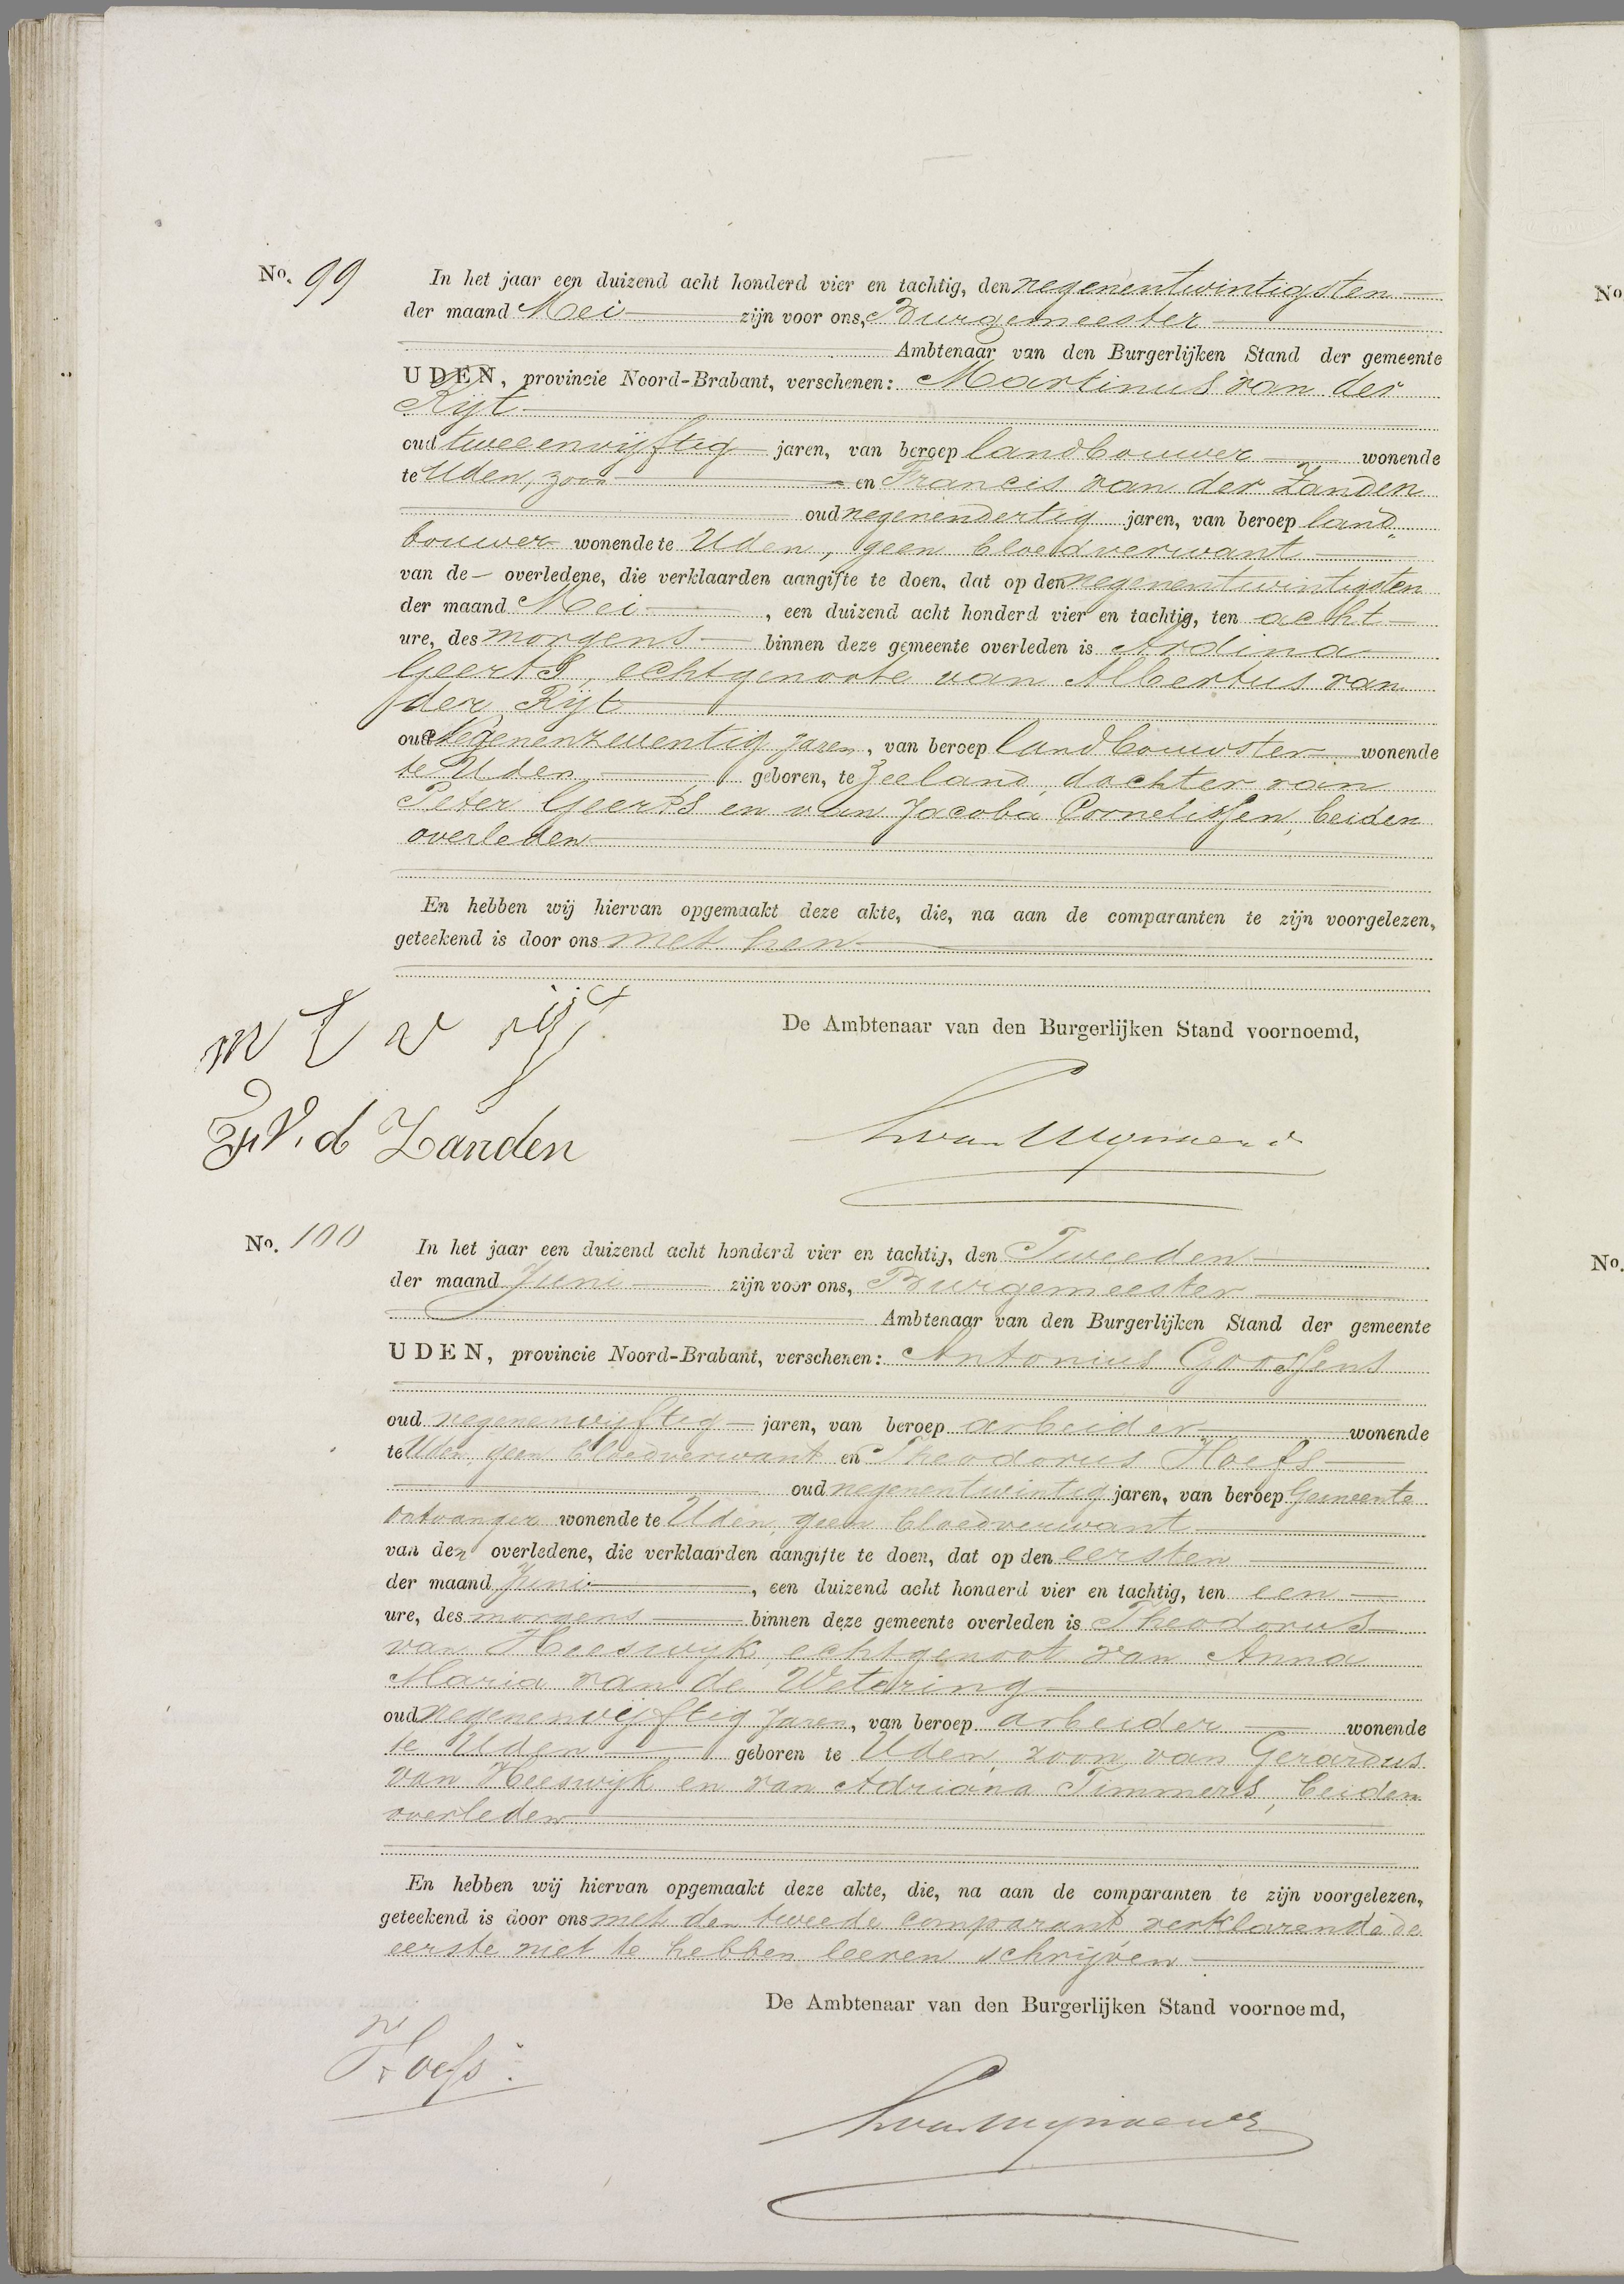 No. 99
In het jaar een duizend acht honderd vier en tachtig, den negenentwintigsten
der maand Mei zijn voor ons, Burgemeester
Ambtenaar van den Burgerlijken Stand der gemeente
UDEN, provincie Noord-Brabant, verschenen: Martinus van der
Rijt
oud tweeenvijftig jaren, van beroep landbouwer wonende
te Uden, zoon en Francis van der Zanden
oud negenendertig jaren, van beroep land„
bouwer wonende te Uden, geen bloedverwant
van de overledene, die verklaarden aangifte te doen, dat op den negenentwintigsten
der maand Mei, een duizend acht honderd vier en tachtig, ten acht
ure, des morgens binnen deze gemeente overleden is Ardina
Geerts, echtgenoote van Albertus van
der Rijt
oud Negenenzeventig jaren, van beroep landbouwster wonende
te Uden geboren, te Zeeland, dochter van
Peter Geerts en van Jacoba Cornelissen, beiden
overleden
En hebben wij hiervan opgemaakt deze akte, die, na aan de comparanten te zijn voorgelezen,
geteekend is door ons met hen
De Ambtenaar van den Burgerlijken Stand voornoemd,
v rijt
V. d Zanden
No. 100
In het jaar een duizend acht honderd vier en tachtig, den Tweeden
der maand Juni zijn voor ons, Burgemeester
Ambtenaar van den Burgerlijken Stand der gemeente
UDEN, provincie Noord-Brabant, verschenen: Antonius Goossens
oud negenenvijftig jaren, van beroep arbeider wonende
te Uden, geen bloedverwant en Theodorus Hoefs
oud negenentwintig jaren, van beroep Gemeente
ontvanger wonende te Uden, geen bloedverwant
van den overledene, die verklaarden aangifte te doen, dat op den eersten
der maand Juni, een duizend acht honderd vier en tachtig, ten een
ure, des morgens binnen deze gemeente overleden is Theodorus
van Heeswijk, echtgenoot van Anna
Maria van de Wetering
oud negenenvijftig jaren, van beroep arbeider wonende
te Uden geboren te Uden, zoon van Gerardus
van Heeswijk en van Adriana Timmers, beiden
overleden
En hebben wij hiervan opgemaakt deze akte, die, na aan de comparanten te zijn voorgelezen,
geteekend is door ons met den tweede comparant verklarende de
eerste niet te hebben leeren schrijven
De Ambtenaar van den Burgerlijken Stand voornoemd,
Hoefs
No
No.